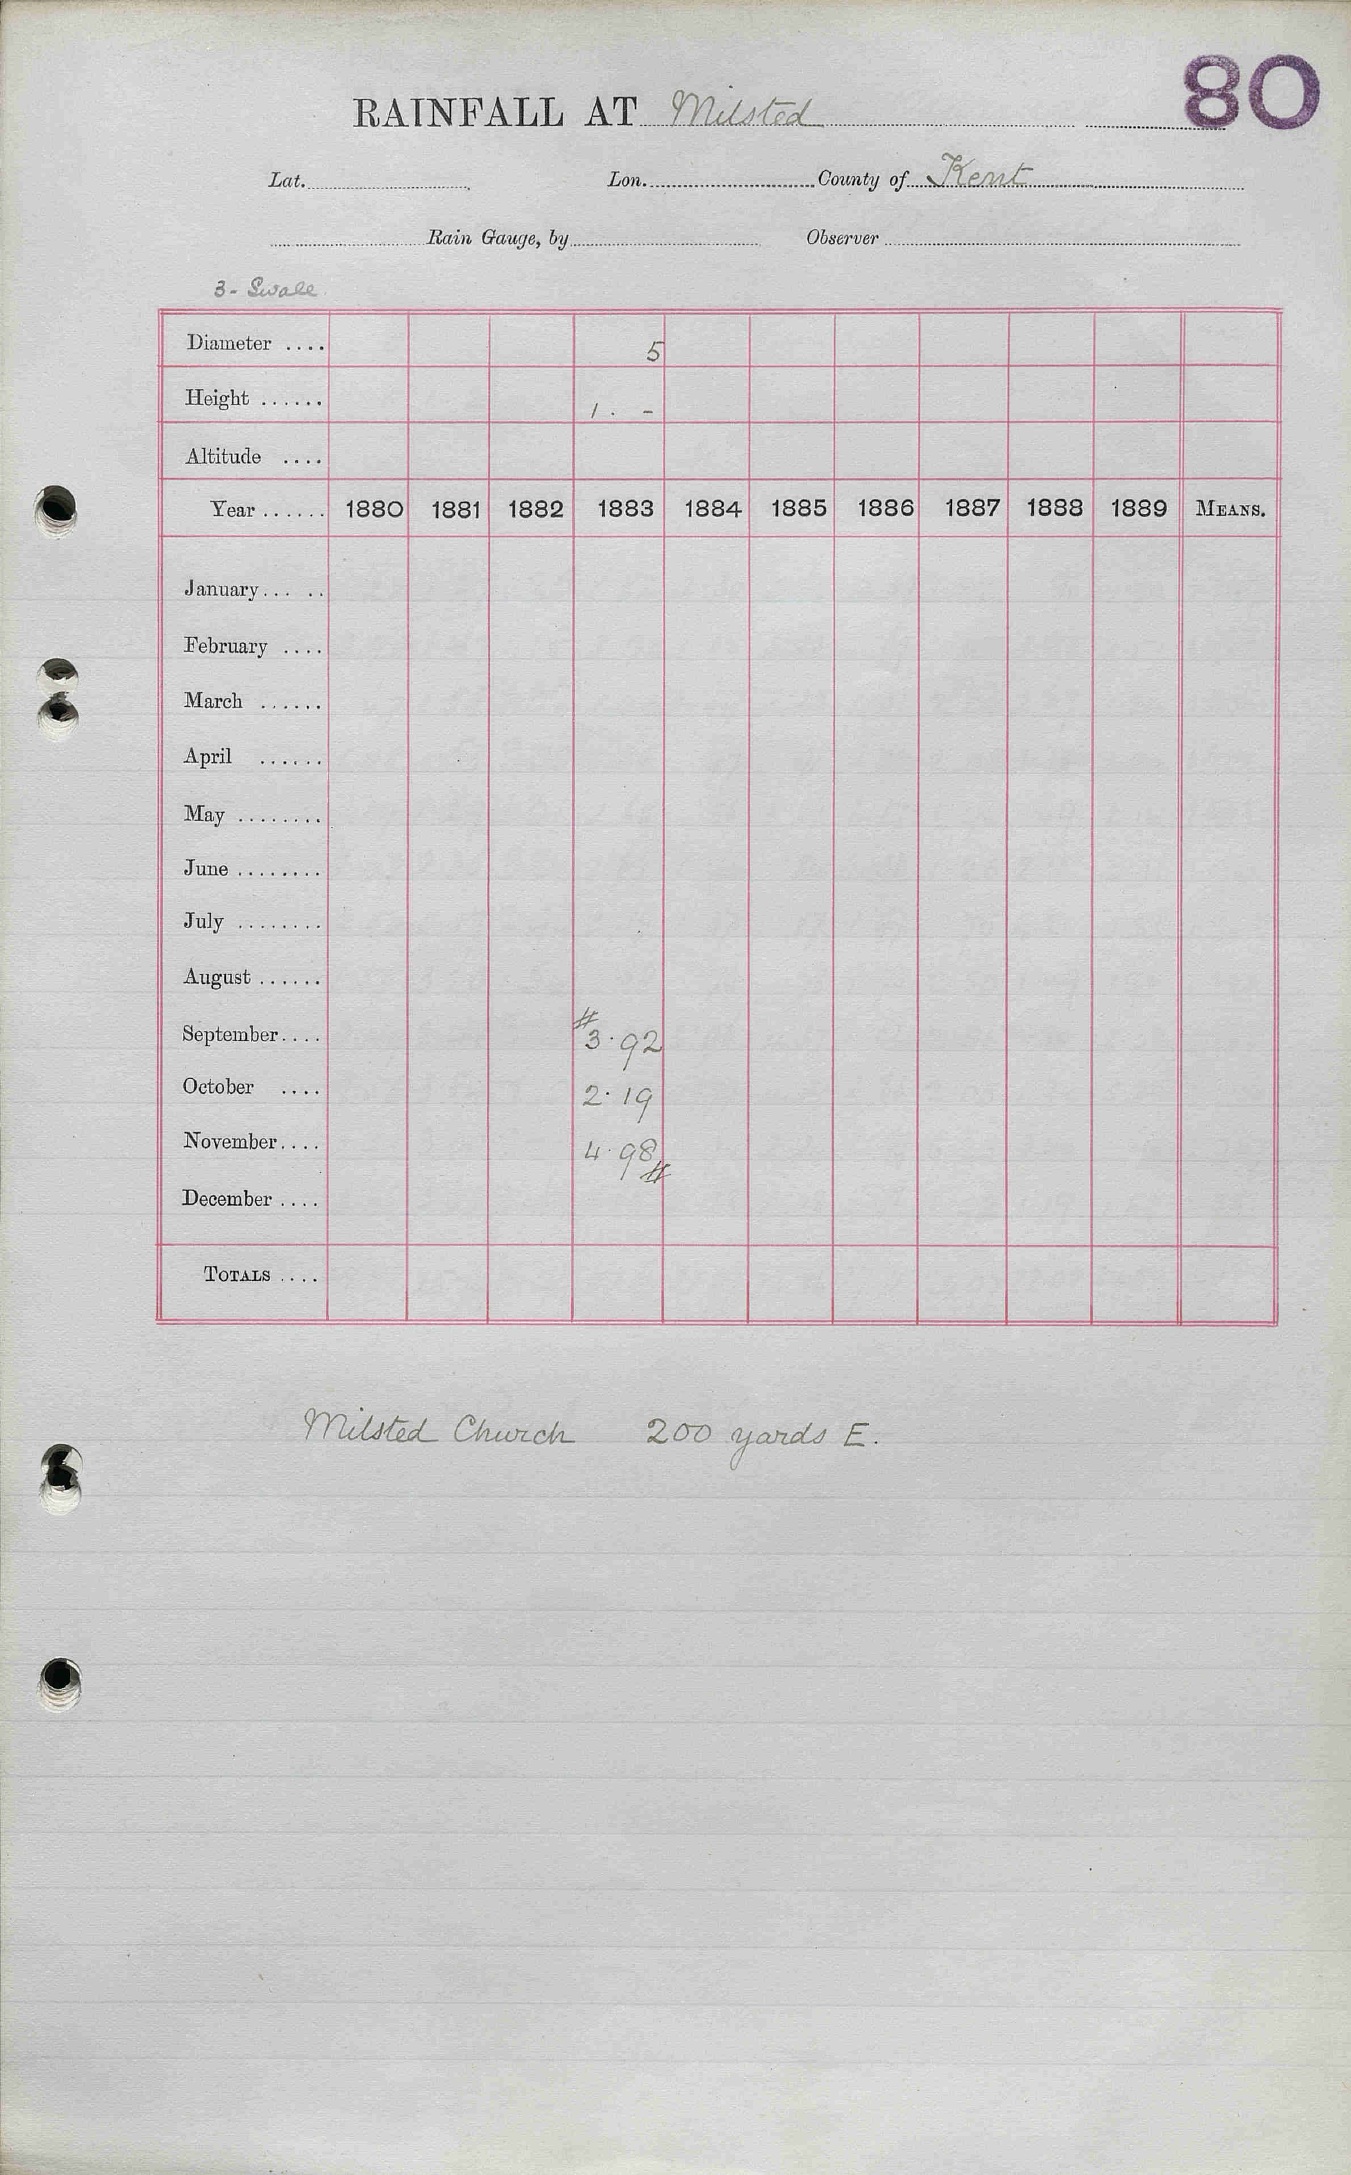 80
RAINFALL AT Milsted
Lat. Lon. County of Kent
Rain Gauge, by Observer
3 - Swale
Diameter .... 5
Height ...... 1 . -
Altitude ....
Year ...... 1880 1881 1882 1883 1884 1885 1886 1887 1888 1889 MEANS.
January ... ..
February ....
March ......
April ......
May ........
June ........
July ........
August ......
September .... # 3.92
October .... 2.19
November .... 4.98 #
December ....
TOTALS ....
Milsted Church 200 yards E.